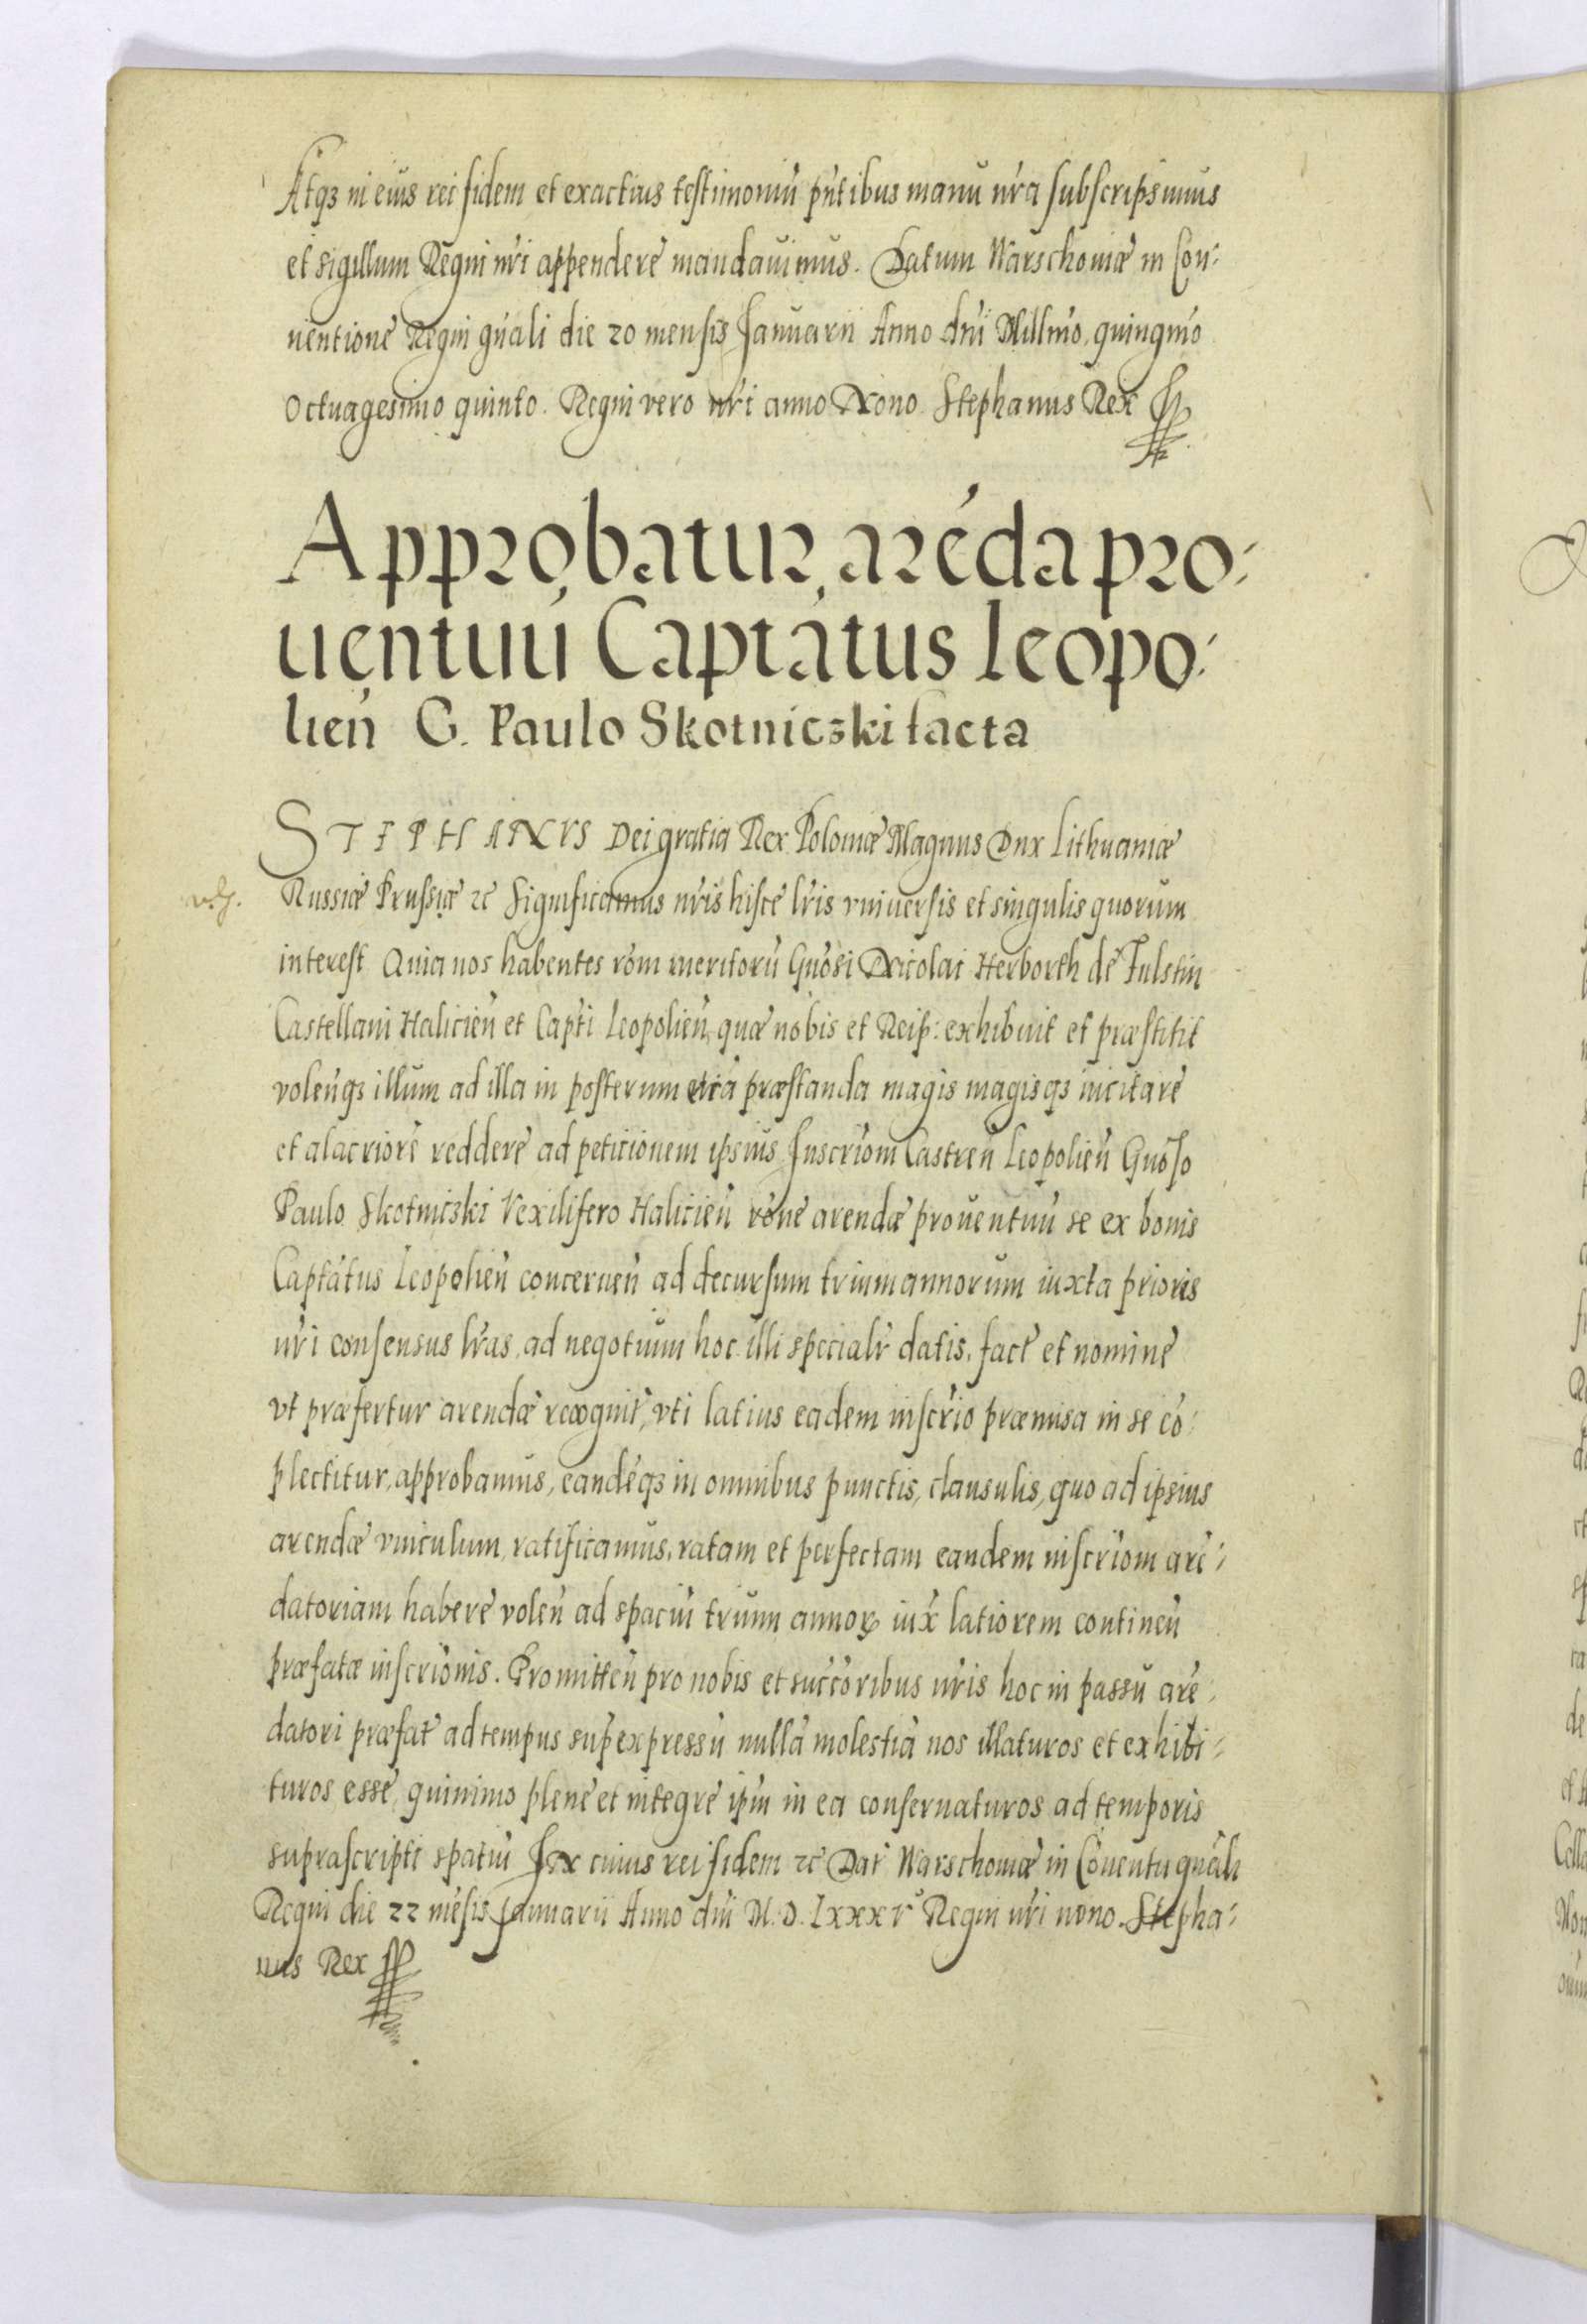 Atqз in eius rei fidem et exactius testimoniū pn̄tibus manu nr̄a subscripsimus
et sigillum Regni nr̄i appendere mandauimus. Datum Warschouiæ in Con:
uentione Regni gn̄ali die 20 mensis Januarii Anno dni Millmo, quingmo
octuagesimo quinto. Regni vero nr̄i anno Nono. Stephanus Rex
Approbatur aréda pro:
uentuū Captātus Leopo:
lien̄ G. Paulo Skotniczki facta
STEPHANVS Dei gratia Rex Poloniæ Magnus Dux Lithuaniæ
Russiæ Prussiæ ꝛc Significamus nr̄is hisce lr̄is vniuersis et singulis quorum
interest Quia nos habentes rōm meritorū Gnōsi Nicolai Herborth de Fulstin
Castellani Halicien̄ et Capti Leopolien̄, quæ nobis et Reip: exhibuit et præstitit
volen̄qз illum ad illa in posterum etiā præstanda magis magisqз incitare
et alacriorē reddere ad petitionem ipsius Inscrīom Castren̄ Leopolien̄ Gnōso
Paulo Skotniczki Vexilifero Halicien̄ rōne arendæ prouentuū se ex bonis
Captātus Leopolien̄ concernen̄ ad decursum trium annorum iuxta prioris
nr̄i consensus lr̄as, ad negotium hoc illi specialr̄ datis, fact̄ et nomine
vt præfertur arendæ recognit̄, vti latius eadem inscrīo præmisa in se cō:
plectitur, approbamus, eandēqз in omnibus punctis, clausulis, quo ad ipsius
arendæ vinculum, ratificamus, ratam et perfectam eandem inscrīom arē:
datoriam habere volen̄ ad spaciū trium annoꝝ iux̄ latiorem continen̄
præfatæ inscrīonis. Promitten̄ pro nobis et succōribus nr̄is hoc in passu arē:
datori præfat̄ ad tempus sup̄expressū nullā molestiā nos illaturos et exhibi:
turos esse, quinimo plene et integre ipm̄ in ea conseruaturos ad temporis
suprascripti spatiū In cuius rei fidem ꝛc Dat̄ Warschouiæ in Cōuentu gn̄ali
Regni die 22 mēsis Januarii Anno dn̄i M. D. Lxxxv° Regni nr̄i nono. Stepha:
nus Rex